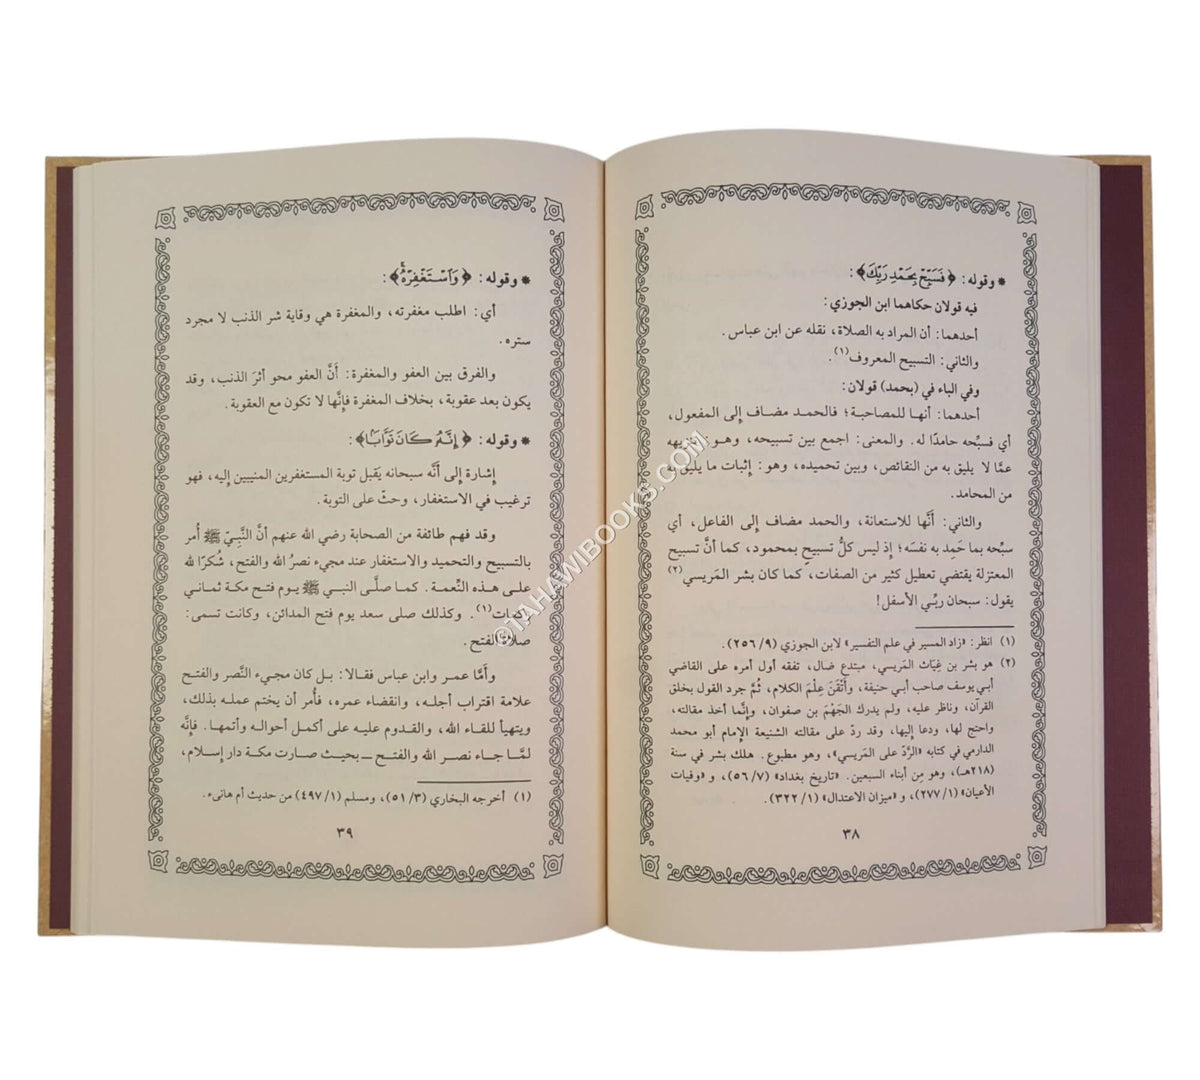 * وقوله: ﴿فَسَبِّحْ بِحَمْدِ رَبِّكَ﴾:
فيه قولان حكاهما ابن الجوزي:
أحدهما: أن المراد به الصلاة، نقله عن ابن عباس.
والثاني: التسبيح المعروف(١).
وفي الباء في (بحمد) قولان:
أحدهما: أنها للمصاحبة؛ فالحمد مضاف إلى المفعول،
أي فسبِّحه حامدًا له. والمعنى: اجمع بين تسبيحه، وهو:
عمَّا لا يليق به من النقائص، وبين تحميده، وهو: إثبات ما يليق
من المحامد.
والثاني: أنَّها للاستعانة، والحمد مضاف إلى الفاعل، أي
سبِّحه بما حَمِد به نفسَه؛ إذ ليس كلُّ تسبيحٍ بمحمود، كما أنَّ تسبيح
المعتزلة يقتضي تعطيل كثير من الصفات، كما كان بشر المَريسي(٢)
يقول: سبحان ربِّي الأسفل!
(١) انظر: «زاد المسير في علم التفسير» لابن الجوزي (٩/ ٢٥٦).
(٢) هو بشر بن غِيَاث المَريسي، مبتدع ضال، تفقه أول أمره على القاضي
أبي يوسف صاحب أبي حنيفة، وأتْقَنَ عِلْمَ الكلام، ثُمَّ جرد القول بخلق
القرآن، وناظر عليه، ولم يدرك الجَهْمَ بن صفوان، وإنَّما أخذ مقالته،
واحتج لها، ودعا إليها، وقد ردَّ على مقالته الشنيعة الإمام أبو محمد
الدارمي في كتابه «الرَّدّ على المَريسي»، وهو مطبوع. هلك بشر في سنة
(٢١٨هـ)، وهو مِن أبناء السبعين. «تاريخ بغداد» (٧/ ٥٦)، و «وفيات
الأعيان» (١/ ٢٧٧)، و «ميزان الاعتدال» (١/ ٣٢٢).
٣٨
* وقوله: ﴿وَٱسْتَغْفِرْهُ﴾:
أي: اطلب مغفرته، والمغفرة هي وقاية شر الذنب لا مجرد
ستره.
والفرق بين العفو والمغفرة: أنَّ العفو محو أثرَ الذنب، وقد
يكون بعد عقوبة، بخلاف المغفرة فإنَّها لا تكون مع العقوبة.
* وقوله: ﴿إِنَّهُۥ كَانَ تَوَّابَۢا﴾:
إشارة إلى أنَّه سبحانه يَقبل توبة المستغفرين المنيبين إليه، فهو
ترغيب في الاستغفار، وحثّ على التوبة.
وقد فهم طائفة من الصحابة رضي الله عنهم أنَّ النَّبيّ ﷺ أُمر
بالتسبيح والتحميد والاستغفار عند مجيء نصرُ الله والفتح، شُكرًا لله
على هذه النِّعمة. كما صلَّى النبي ﷺ يوم فتح مكة ثماني
ركعات(١). وكذلك صلى سعد يوم فتح المدائن، وكانت تسمى:
صلاة الفتح.
وأمَّا عمر وابن عباس فقالا: بل كان مجيء النَّصر والفتح
علامة اقتراب أجله، وانقضاء عمره، فأُمر أن يختم عمله بذلك،
ويتهيأ للقاء الله، والقدوم عليه على أكمل أحواله وأتمها. فإنَّه
لمَّا جاء نصر الله والفتح ــ بحيث صارت مكة دار إسلام،
(١) أخرجه البخاري (٣/ ٥١)، ومسلم (١/ ٤٩٧) من حديث أم هانىء.
٣٩
©TAHAWIBOOKS.COM